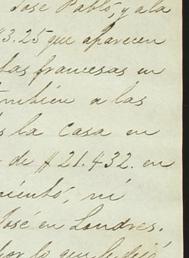 José Pablo, y a la
3.25 que aparecen
las francesas en
también a las
s la casa en
de $21.432. en
miento, ni
José en Londres.
por lo que le dijo